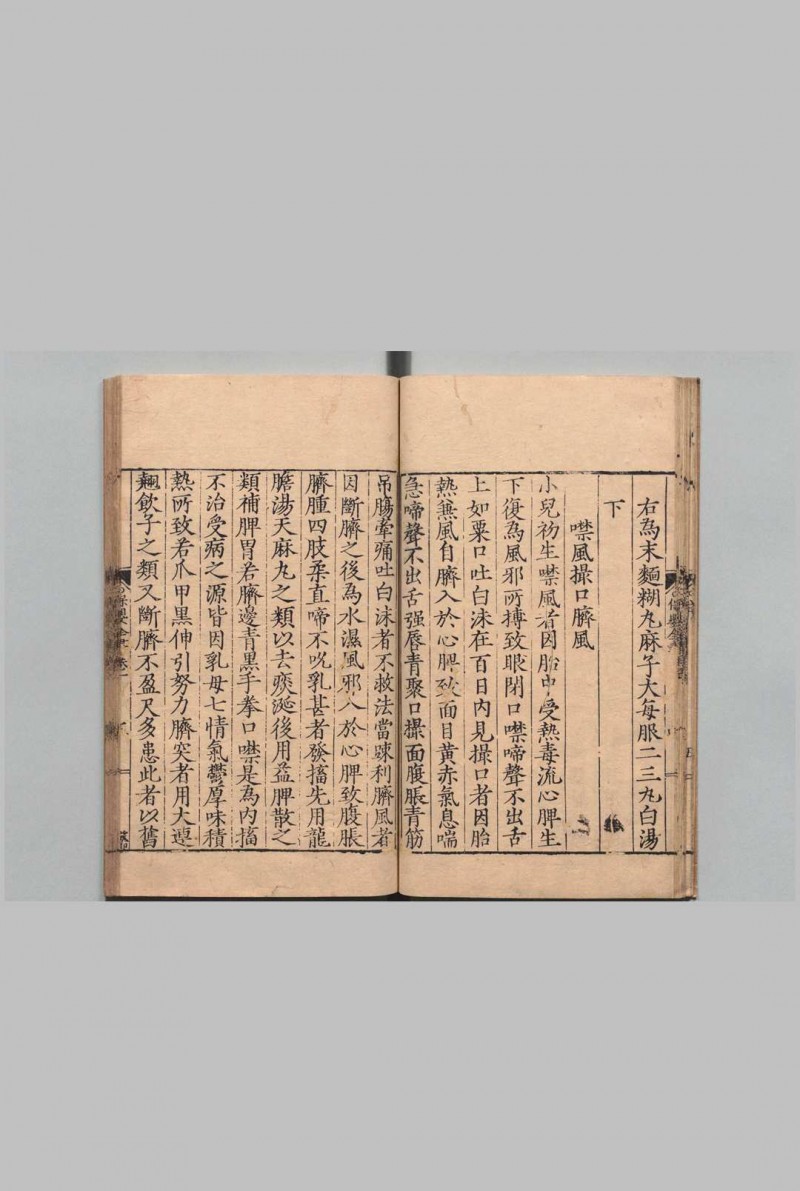 右為末麵糊丸麻子大每服二三丸白湯
下
噤風撮口臍風
小兒初生噤風者因胎中受熱毒流心脾生
下復為風邪所搏致眼閉口噤啼聲不出舌
上如粟口吐白沫在百日內見撮口者因胎
熱兼風自臍入於心脾致面目黃赤氣息喘
急啼聲不出舌强唇青聚口撮面腹脹青筋
吊腸牽痛吐白沫者不救法當疎利臍風者
因斷臍之後為水濕風邪入於心脾致腹脹
臍腫四肢柔直啼不吮乳甚者發搐先用龍
膽湯天麻丸之類以去痰涎後用益脾散之
類補脾胃若臍邊青黑手拳口噤是為內搐
不治受病之源皆因乳母七情氣鬱厚味積
熱所致若爪甲黑伸引努力臍突者用大連
翹飲子之類又斷臍不盈尺多患此者以舊